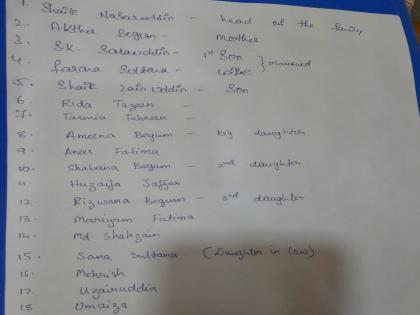 1. Shaik Nasaruddin - head of the family
2. Akther Begum - Mother
3. S.K. Salauddin - 1st Son
4. Farana Sultana - wife } Married
5. Shaik Zain Uddin - Son
6. Rida Tazeen -
7. Tasmia Tahreen -
8. Ameena Begum - big daughter
9. Anees Fatima
10. Shabana Begum - 2nd daughter
11. Huzaifa Jaffar
12. Rizwana Begum - 3rd daughter
13. Mariyam Fatima
14. Md Shahzain
15. Sana Sultana (Daughter in law)
16. Mehrish
17. Uzairuddin
18. Omaiza